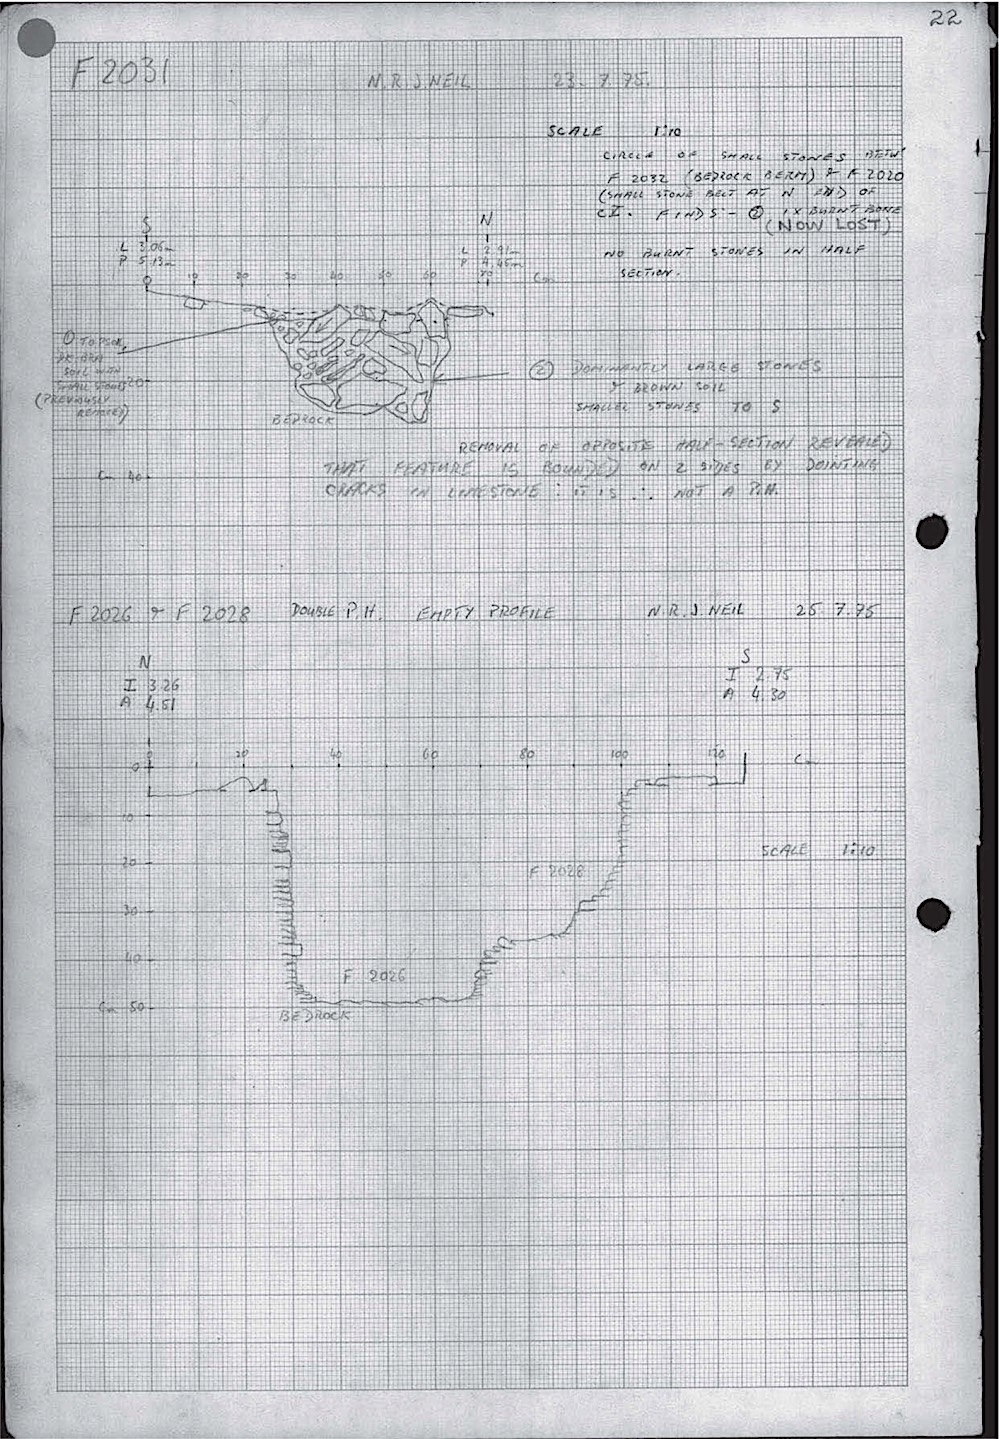 22
F 2031 N.R.J. NEIL 23. 7.75.
SCALE 1:10
CIRCLE OF SMALL STONES BETW'
F 2032 (BEDROCK BERM) & F 2020
(SMALL STONE BELT AT N END OF
CI. FINDS - ② 1X BURNT BONE
(NOW LOST)
NO BURNT STONES IN HALF
SECTION.
S
L 3.06m
P 5.13m
N
L 2.91m
P 4.45m
0 10 20 30 40 50 60 70 Cm
① TOPSOIL
DK. BRN
SOIL WITH
SMALL STONES
(PREVIOUSLY
REMOVED)
20
BEDROCK
② DOMINANTLY LARGE STONES
& BROWN SOIL
SMALLER STONES TO S
REMOVAL OF OPPOSITE HALF-SECTION REVEALED
THAT FEATURE IS BOUNDED ON 2 SIDES BY JOINTING
CRACKS IN LIMESTONE : IT IS ∴ NOT A P.H.
Cm 40
F 2026 & F 2028 DOUBLE P.H. EMPTY PROFILE N.R.J. NEIL 25 7.75
N
I 3.26
A 4.51
S
I 2.75
A 4.30
0 20 40 60 80 100 120 Cm
0
10
20
30
40
Cm 50
SCALE 1:10
F 2028
F 2026
BEDROCK